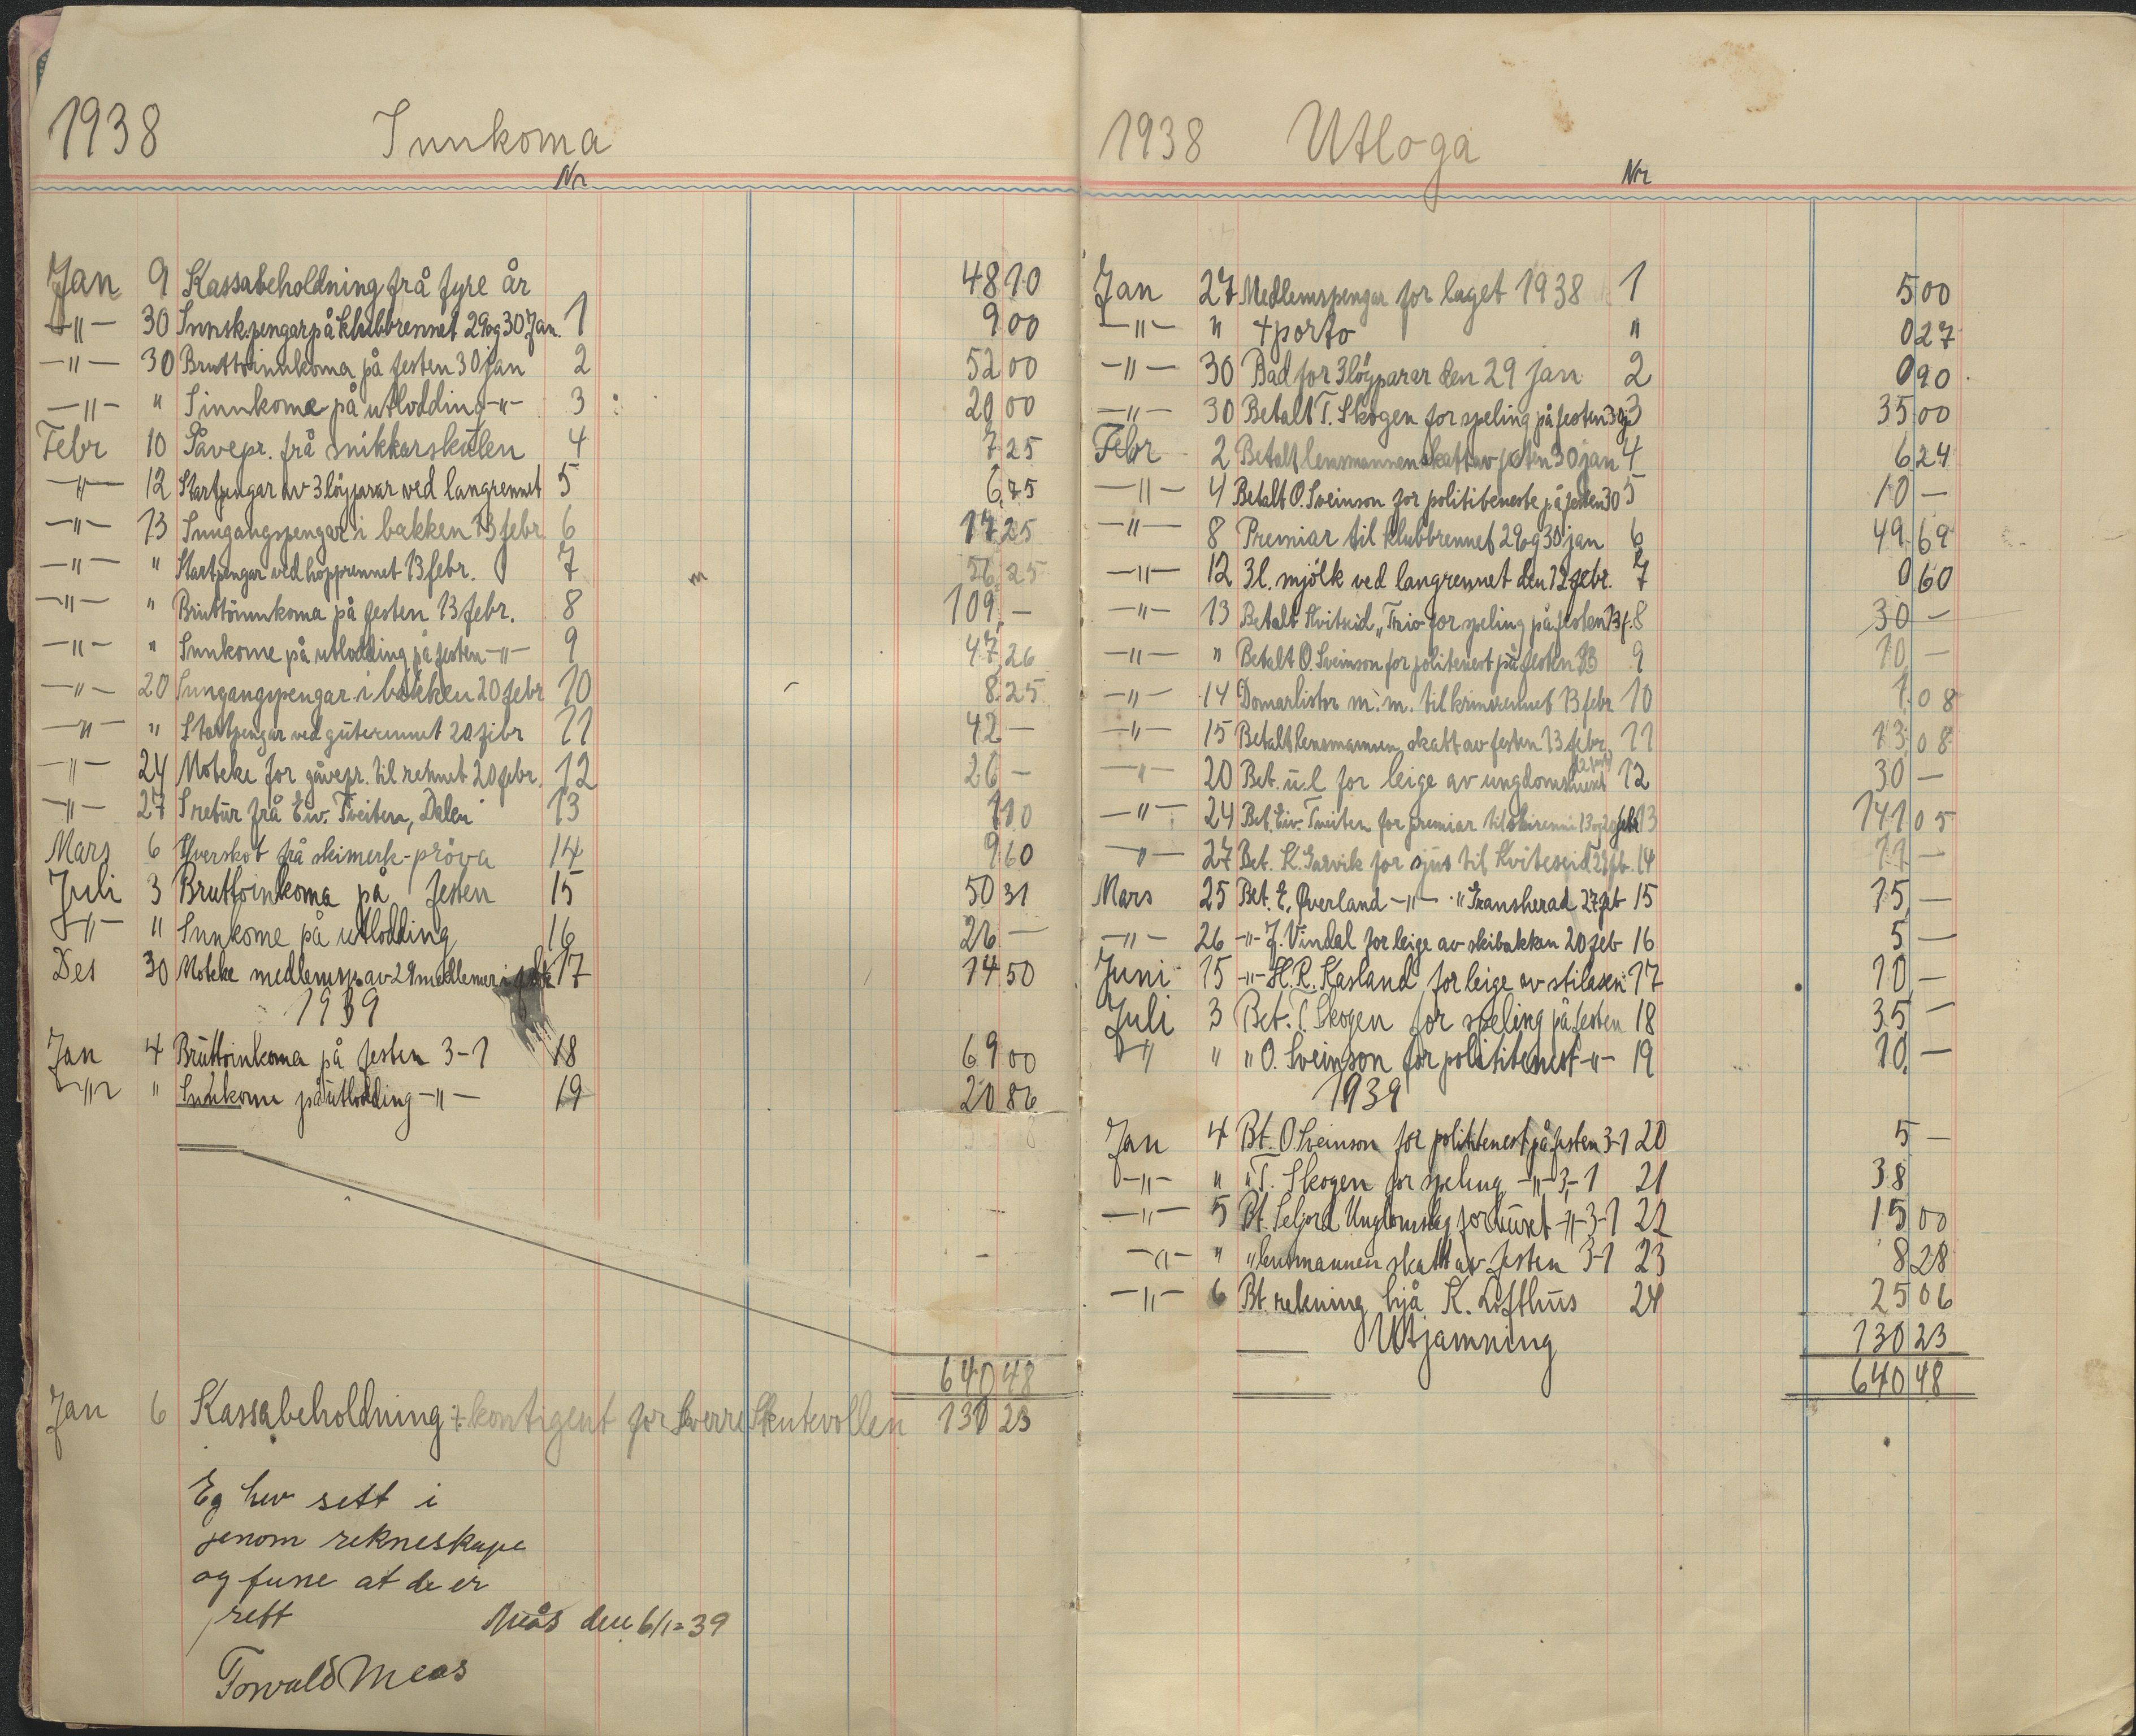 1938 Innkoma
Nr
Jan 9 Kassabeholdning frå fyre år 48 10
-"- 30 Innsk.pengar på klubbrennet 29 og 30 Jan. 1 9 00
-"- 30 Bruttoinnkoma på festen 30 jan 2 52 00
-"- " Innkome på utlodding -"- 3 20 00
Febr 10 Gåvepr. frå snikkarskulen 4 7 25
-"- 12 Startpengar av 3 löyparar ved langrennet 5 6,75
-"- 13 Inngangspengar i bakken 13 febr 6 17 25
-"- " Startpengar ved hopprennet 13 febr. 7 56 25
-"- " Bruttöinnkoma på festen 13 febr. 8 109,-
-"- " Innkome på utlodding på festen -"- 9 47,26
-"- 20 Inngangspengar i bakken 20 febr 10 8 25
-"- " Startpengar ved guterennet 20 febr 11 42 -
-"- 24 Moteke for gåvepr. til rennet 20 febr. 12 26 -
-"- 27 I retur frå Eiv. Tveiten, Dalen 13 1 10
Mars 6 Yverskot frå skimerk-pröva 14 9 60
Juli 3 Bruttoinkoma på festen 15 50 31
-"- " Innkome på utlodding 16 26 -
Des 30 Moteke medlemsp. av 29 medlemer i 17 14 50
1939
Jan 4 Bruttoinkoma på festen 3-1 18 69 00
-"- " Innkome på utlodding -"- 19 20 86
640 48
Jan 6 Kassabeholdning + kontigent for Sverre Skutevollen 130 23
Eg hev sett i
jenom rekneskape
og fune at de er
rett Meås den 6/1-39
Torvald Meas
1938 Utloga
Nr
Jan 27 Medlemspengar for laget 1938 1 5 00
-"- " + porto " 0 27
-"- 30 Bad for 3 löyparar den 29 jan 2 0 90
-"- 30 Betalt T. Skogen for speling på festen 30 j 3 35 00
Febr 2 Betalt lensmannen skatt av festen 30 jan 4 6 24
-"- 4 Betalt O. Sveinson for polititeneste på festen 30 5 10 -
-"- 8 Premiar til klubbrennet 29 og 30 jan 6 49 69
-"- 12 3 l. mjölk ved langrennet den 12 febr. 7 0 60
-"- 13 Betalt Kvitseid "Trio for speling på festen 13 f. 8 30 -
-"- " Betalt O. Sveinson for politenest på festen 13 9 10 -
-"- 14 Domarlistor m. m. til krinsrennet 13 febr 10 1 08
-"- 15 Betalt lensmannen skatt av festen 13 febr, 11 13,08
-"- 20 Bet. u.l for leige av ungdomshuset 12 30 -
-"- 24 Bet. Eiv. Tveiten for premiar til skirenni 13 og 20 febr 13 141 05
-"- 27 Bet. K. Garvik for sjus til Kviteseid 27 fb. 14 11 -
Mars 25 Bet. E. Øverland -"- " Gransherad 27 feb 15 15 -
-"- 26 -"- J. Vindal for leige av skibakken 20 feb 16 5 -
Juni 15 -"- H. R. Kasland for leige av stilasen 17 10 -
Juli 3 Bet. T. Skogen for speling på festen 18 35 -
-"- " " O. Sveinson for polititenest -"- 19 10 -
1939
Jan 4 Bt. O Sveinson for polititenest på festen 3-1 20 5 -
-"- " " T. Skogen for speling -"- 3-1 21 38
-"- 5 Bt. Seljord Ungdomslag for huset -"- 3-1 22 15 00
-"- " " lensmannen skatt av festen 3-1 23 8 28
-"- 6 Bt. rekning hjå K. Lofthus 24 25 06
Utjamning 130 23
640 48